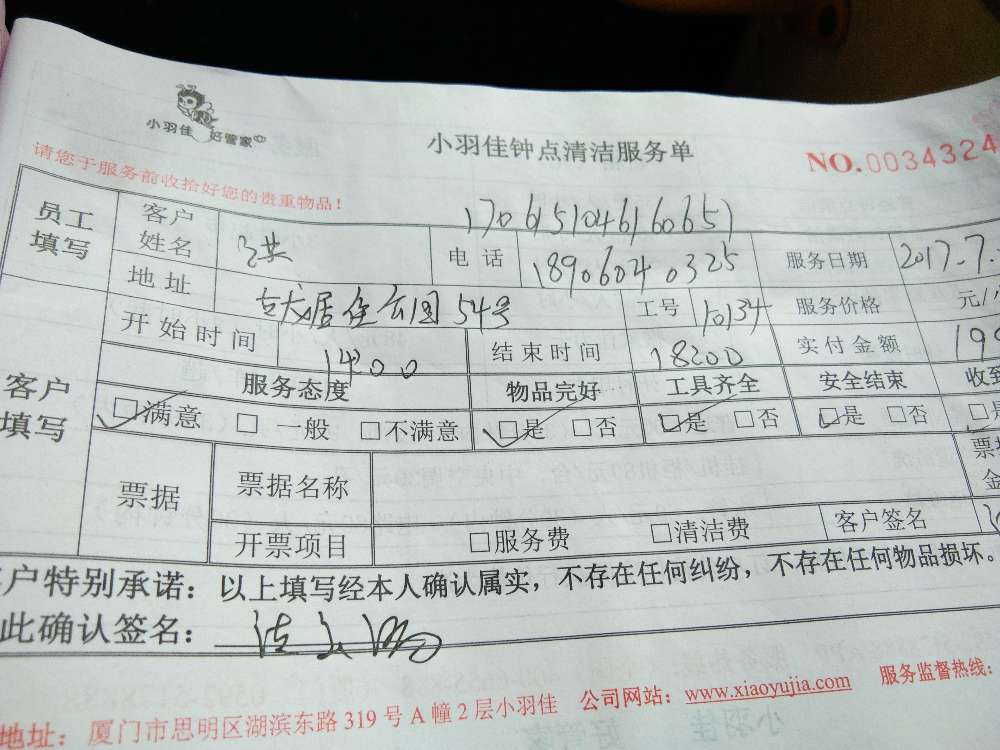 小羽佳 好管家
小羽佳钟点清洁服务单
NO.0034324
请您于服务前收拾好您的贵重物品!
170615104616065
员工填写 客户姓名 电话 18906040325 服务日期 2017.7.
地址 居住公园54号 工号 10134 服务价格 元/
客户填写 开始时间 1400 结束时间 18200 实付金额 199
服务态度 物品完好 工具齐全 安全结束 收到
□满意 □一般 □不满意 □是 □否 □是 □否 □是 □否 □是
票据 票据名称 票据金
开票项目 □服务费 □清洁费 客户签名
客户特别承诺：以上填写经本人确认属实，不存在任何纠纷，不存在任何物品损坏。
此确认签名：
地址：厦门市思明区湖滨东路319号A幢2层小羽佳 公司网站：www.xiaoyujia.com 服务监督热线：